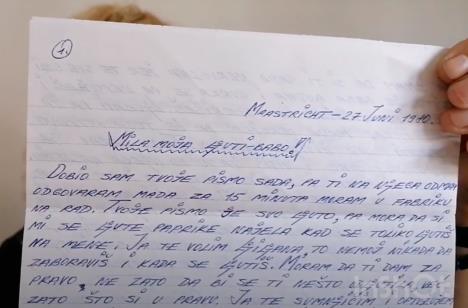 1.
MAASTRICHT - 27 JUNI 1910.
MILA MOJA LJUTI-BABO!
DOBIO SAM TVOJE PISMO SADA, PA TI NA NJEGA ODMAH
ODGOVARAM MADA ZA 15 MINUTA MORAM U FABRIKU
NA RAD. TVOJE PISMO JE SVO LJUTO, PA MORA DA SI
MI SE LJUTE PAPRIKE NAJELA KAD SE TOLIKO LJUTIŠ
NA MENE. JA TE VOLIM LJILJANA, TO NEMOJ NIKADA DA
ZABORAVIŠ I KADA SE LJUTIŠ. MORAM DA TI DAM ZA
PRAVO, NE ZATO DA BI SE TI NEŠTO
ZATO ŠTO SI U PRAVU. JA TE SUMNJIČIM